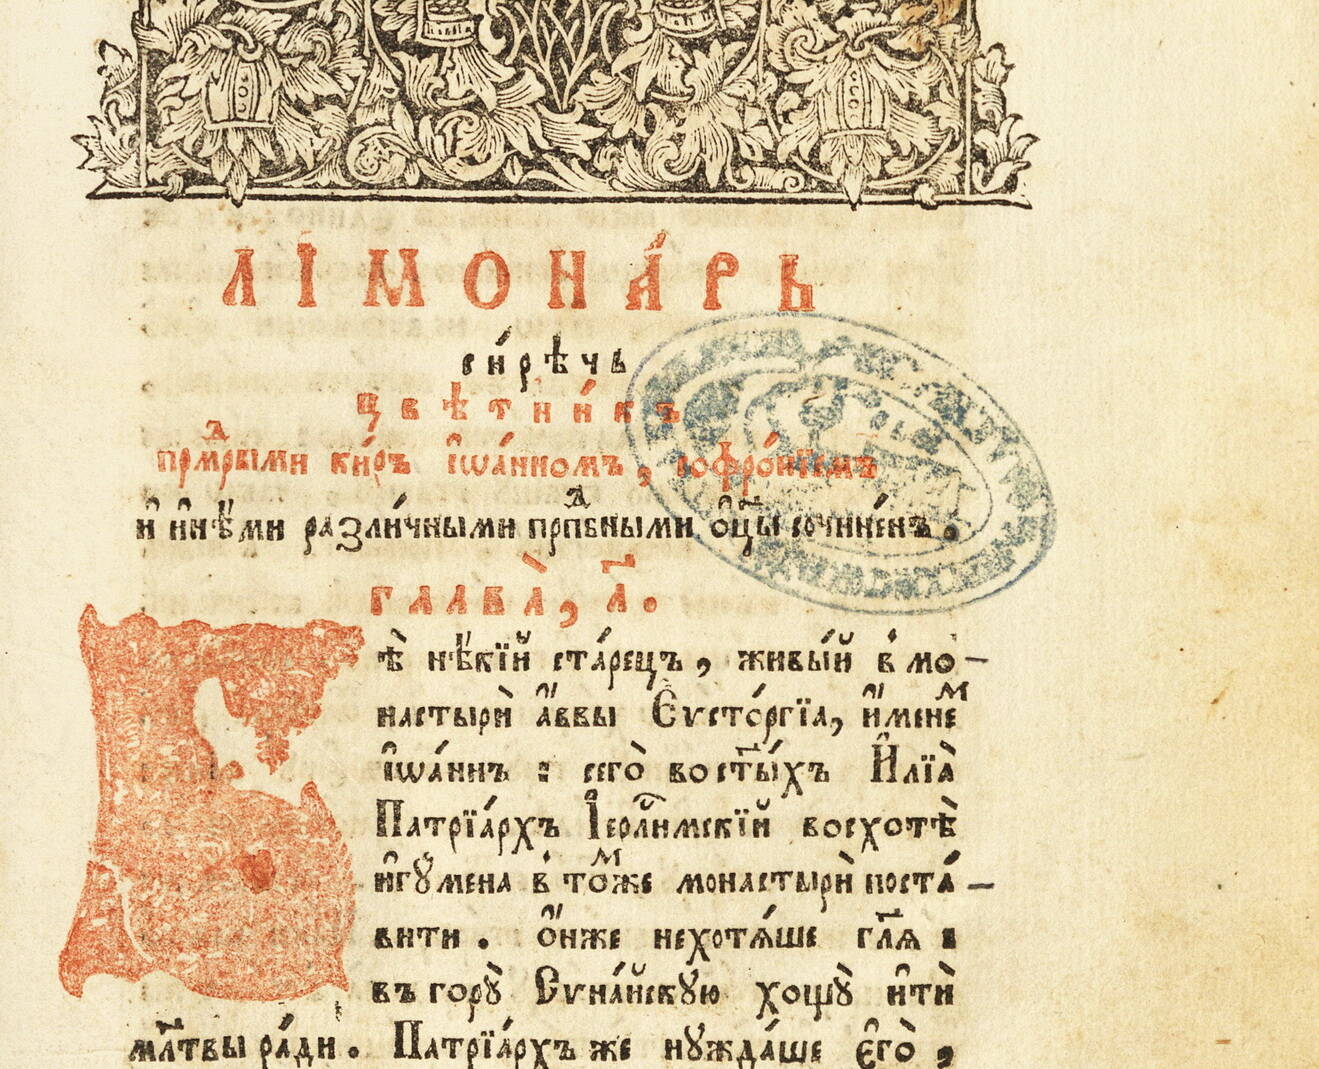 ЛІМОНА́РЬ
си́рѣчь
цвѣтни́къ
прⷣмрыми ки́ръ і҆ѡа́нномъ, софро́нїемъ
и҆ и҆нѣ́ми разли́чными прпⷣбными ѻ҆ц҃ы сочине́нъ.
глава̀, а҃.
Бѣ̀ нѣ́кїй ста́рецъ, живы́й в̾ мо–
настырѝ а҆́ввы Є҆ѵсто́ргїа, и҆́менеⷨ
і҆ѡа́ннъ : сего̀ во ст҃ы́хъ И҆лїа̀
Патрїа́рхъ І҆ерⷭ҇ли́мскїй восхотѣ̀
и҆гꙋ́мена в̾ то́ⷨже монастырѝ поста́–
вити . ѻ҆́нже нехотѧ́ше гл҃ѧ :
въ горꙋ̀ Сѵна́йскꙋю хощꙋ̀ и҆тѝ
мл҃твы ра́ди . Патрїа́рхъ же нꙋжда́ше є҆го̀ ,